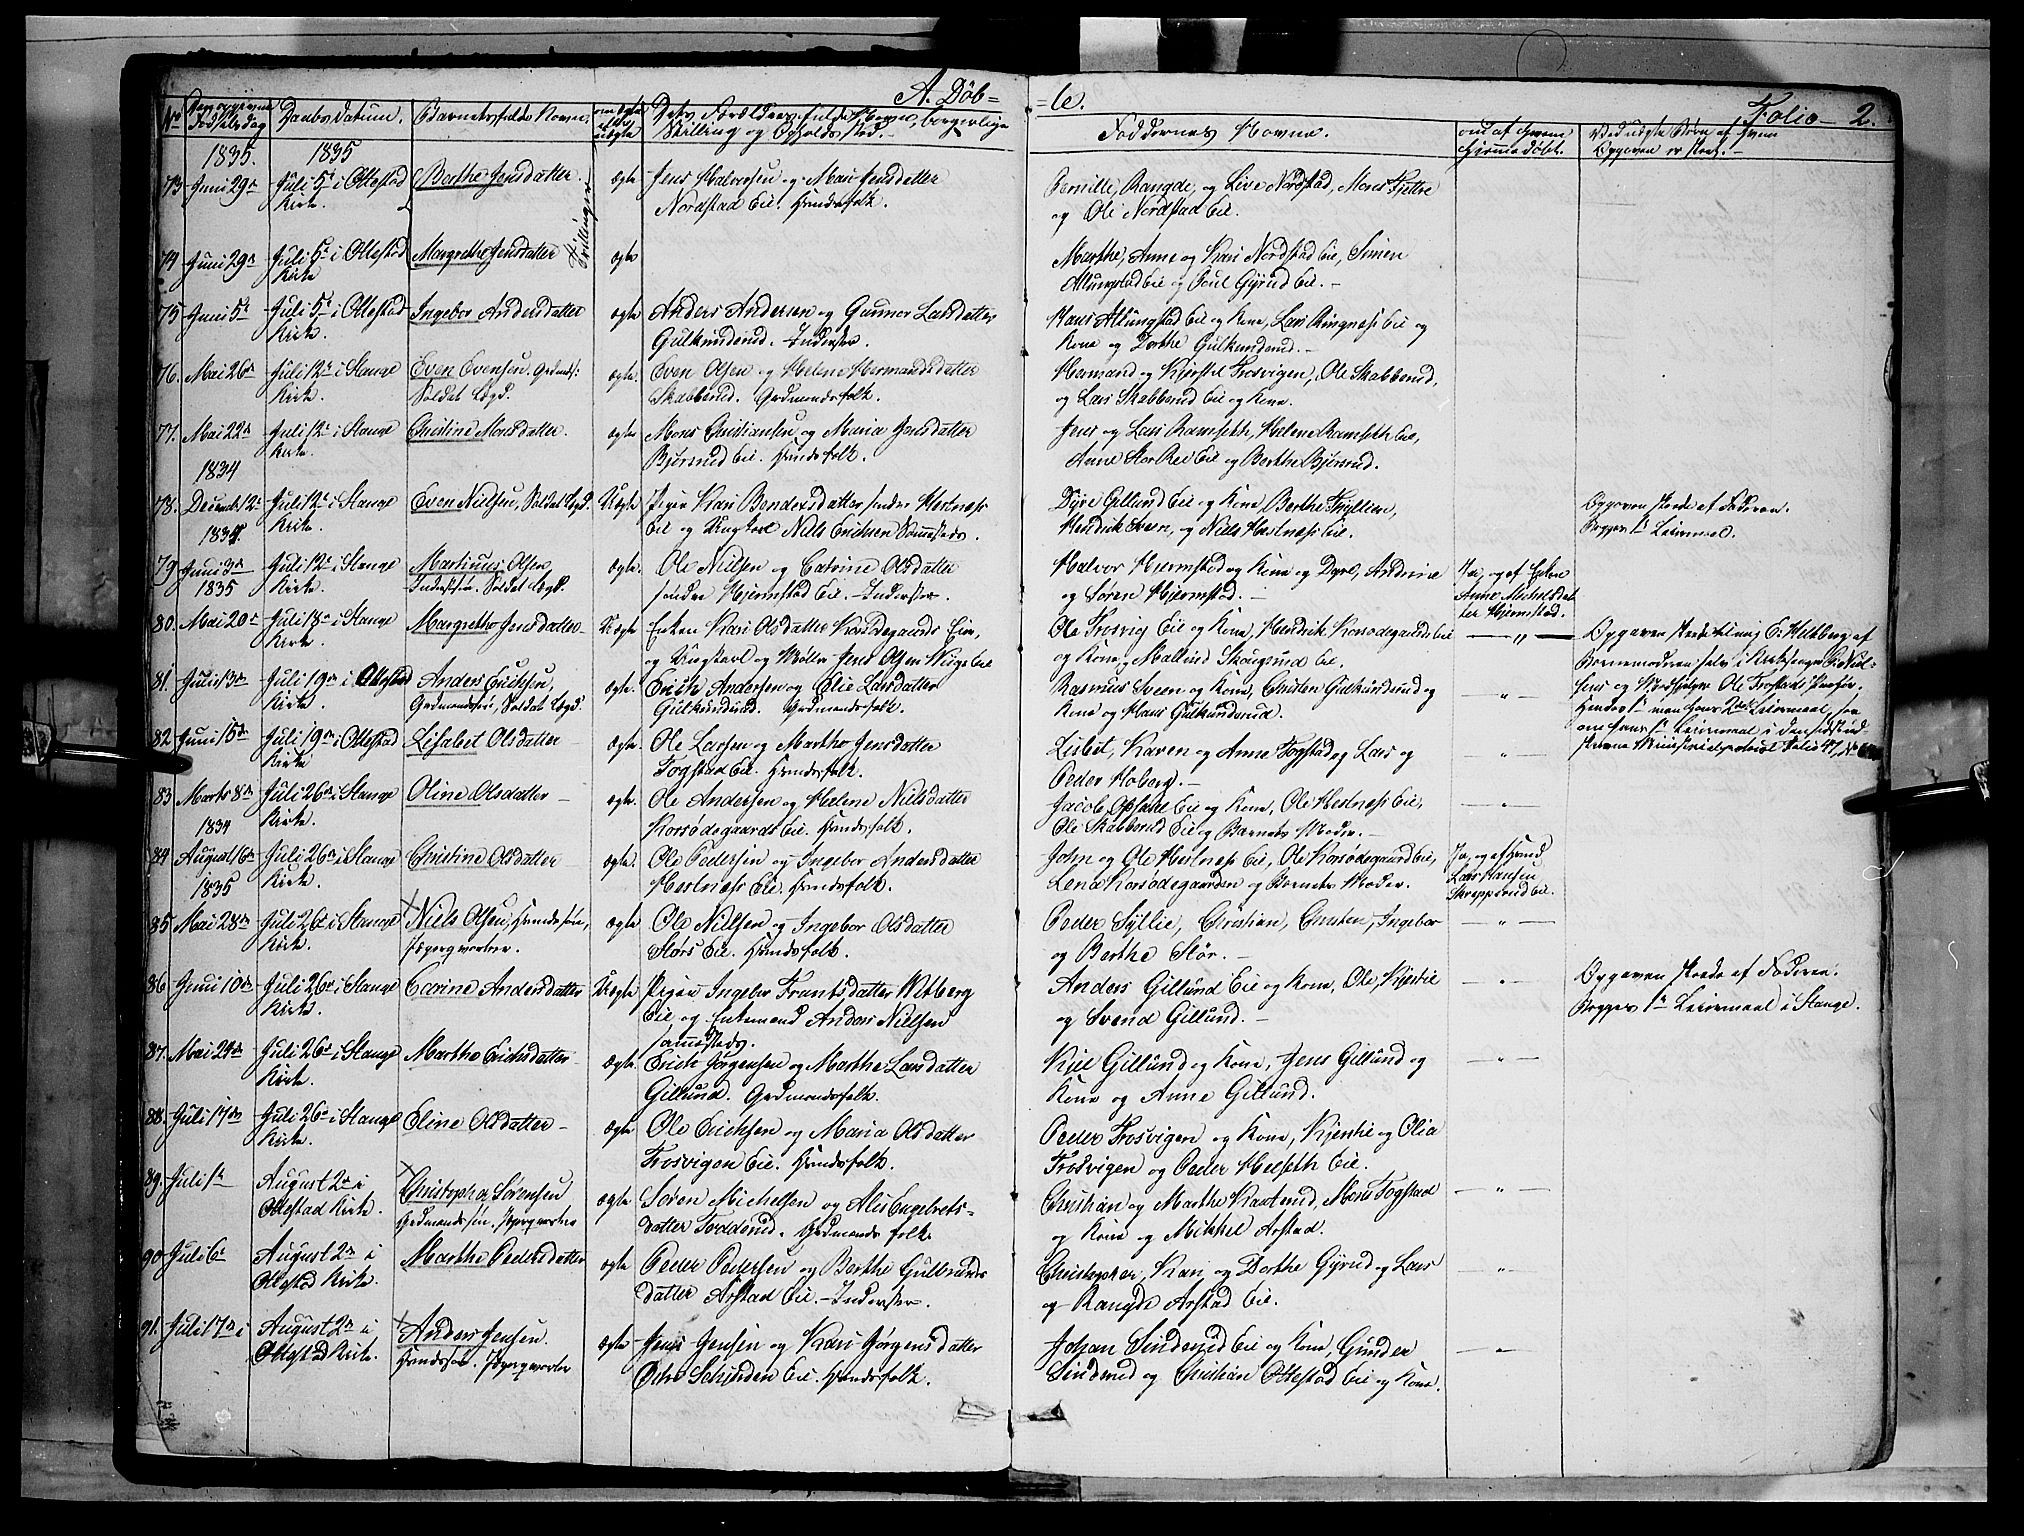 A. Døb= =te. Folio 2.
No Fødselsdag Daabs Datum. Barnets fulde Navn Forældrenes fulde Navn, borgerlige
Stilling og Opholds Sted. Faddernes Navne. om af hvem hjemmedøbt.
1835. 1835
73 Juni 29de Juli 5te i Ottestad Kirke. Berthe Jensdatter. Tvillinger ægte Jens Halvorsen og Mari Jensdatter
Nordstad Eie. Huusfolk. Pernille, Rangde, og Live Nordstad, Mons
og Ole Nordstad Eie.
74 Juni 29de Juli 5te i Ottestad Kirke Margrethe Jensdatter ægte Marthe, Anne og Kari Nordstad Eie, Simen
Allungstad Eie og Poul Gyrud Eie. –
75 Juni 5te Juli 5te i Ottestad Kirke. Ingebor Andersdatter ægte Anders Andersen og Gunnor Larsdatter
Gulkundsrud. Inderster. Hans Allungstad Eie og Kone, Lars Ringnæss Eie og
Kone og Dorthe Gulkundsrud. –
76. Mai 26de Juli 12te i Stange Kirke. Even Evensen. Soldat Lægd. ægte. Even Olsen og Helene Hermandsdatter
Skabberud. Grdmandsfolk. Hermand og Kjersti Frosvigen, Ole Skabberud,
og Lars Skabberud Eie og Kone.
77. Mai 22de Juli 12te i Stange Kirke. Christine Monsdatter. ægte Mons Christiansen og Maria Jensdatter
Bjørsrud Eie. Huusfolk. Jens og Lars Ramseth, Helene Ramseth Eie,
Anne Stor Ree Eie og Berthe Bjørsrud.
1834
78. Decembr 12te Juli 12te i Stange Kirke. Even Nielsen, Soldat Lægd. Uægte Pigen Kari Bendixsdatter søndre Hestnæss
Eie og Ungkarl Niels Erichsen Sammesteds. Dyre Gillund Eie og Kone, Berthe
Hendrik Sveen, og Niels Hestnæss Eie. Opgaven skede af Faderen.
Begges 1te Leiermaal.
1834.
79 Juni 3de Juli 12te i Stange Kirke. Martinus Olsen, Soldat Lægd. ægte. Ole Nielsen og Catrine Olsdatter
søndre Hjermstad Eie. – Inderster. Halvor Hjermstad og Kone og Dyre, Andrine
og Søren Hjermstad. – Ja, og af Enken
Anne Michelsdat-
ter Hjermstad.
1835
80. Mai 20de Juli 18de i Stange Kirke. Margrethe Jensdatter – Uægte Enken Kari Olsdatter Korsødegaards Eie,
og Ungkarl og Møller Jens Olsen Wiige Eie Ole Frosvig Eie og Kone, Hendrik Korsødegaards Eie
og Kone, og Mallene Skougsrud Eie. — „ — Opgaven skede til mig E. Heltberg af
Barnemoderen selv i
sens og Ole Frostads
Hendes 1te men hans 2det Leiermaal, saa
81. Juli 13de Juli 19de i Ottestad Kirke. Anders Erichsen, Grdmandssøn, Soldat Lægd. ægte. Erich Andersen og Elie Larsdatter
Gulkundsrud. Grdmandsfolk. Rasmus Sveen og Kone, Christen Gulkundsrud og
Kone og Hans Gulkundsrud. — „ —
82. Juni 15de Juli 19de i Ottestad Kirke Lisabet Olsdatter – ægte Ole Larsen og Marthe Jensdatter
Fogstad Eie. Huusfolk. Lisbet, Karen og Anne Fogstad og Lars og
Peder Hoberg. – — „ —
83 Marts 8de Juli 26de i Stange Kirke. Oline Olsdatter – ægte. Ole Andersen og Helene Nielsdatter
Korsødegaards Eie. Huusfolk. Jacob Opsahl Eie og Kone, Ole Hestnæss Eie,
Ole Skabberud Eie og Barnets Moder. – — „ —
1834
84 August 16de Juli 26de i Stange Kirke. Christine Olsdatter – ægte. Ole Pedersen og Ingebor Andersdatter
Hestnæss Eie. Huusfolk. John og Ole Hestnæss Eie, Ole Korsødegaard Eie,
Lene Korsødegaarden og Barnets Moder. Ja, og af
Lars Hansen
Skrepperud Eie.
1835
85 Mai 28de Juli 26de i Stange Kirke. Niels Olsen, ægte Ole Nielsen og Ingebor Olsdatter
Størs Eie. Huusfolk. Peder Syllie, Christian, Christen, Ingebor
og Berthe Stør. – — „ —
86 Juni 10de Juli 26de i Stange Kirke. Carine Andersdatter Uægte Pigen Ingebor Frantsdatter Wetberg
Eie og Enkemand Anders Nielsen
sammesteds. Anders Gillund Eie og Kone, Ole, Kjersti
og Svend Gillund. – — „ — Opgaven skede af Faderen.
Begges 1te Leiermaal i Stange.
87. Mai 24de Juli 26de i Stange Kirke. Marthe Erichsdatter – ægte Erich Jørgensen og Marthe Larsdatter
Gillund. Grdmandsfolk. Kjel Gillund og Kone, Jens Gillund og
Kone og Anne Gillund. — „ —
88. Juli 17de Juli 26de i Stange Kirke. Eline Olsdatter – ægte Ole Erichsen og Maria Olsdatter
Frosvigen Eie. Huusfolk. Peder Frosvigen og Kone, Kjersti og Olia
Frosvigen og Peder Helseth Eie.
89. Juli 1te August 2de i Ottestad Kirke. Christopher Sørensen Grdmandssøn. ægte Søren Michelsen og Alis Engelrets-
datter Fodderud. Grdmandsfolk Christian og Marthe Kaatsrud, Mons Fogstad
og Kone og Mikkel Arstad. — „ —
90 Juli 6te August 2de i Ottestad Kirke. Marthe Pedersdatter ægte Peder Pedersen og Berthe Gulbrands
datter Arstad Eie. – Inderster. Christopher, Kari og Dorthe Gyrud og Lars
og Rangde Arstad Eie. — „ —
91. Juli 17de August 2de i Ottestad Kirke. Anders Jensen. ægte Jens Jensen og Kari Jørgensdatter
Eie. Huusfolk. Johan Sinderud Eie og Kone, Gunder
Sinderud og Christian Ottestad Eie og Kone. — „ —